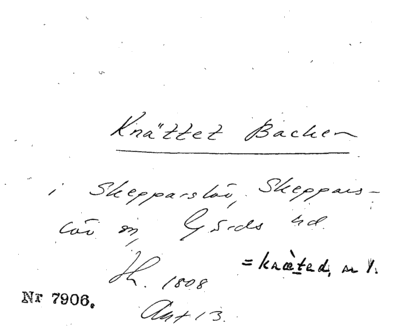 Knättet Backen
i Skepparslöv, Skeppars-
löv sn, Gärds hd.
= knæ̀ted, sn 1.
Jh. 1808
Nr 7906.
Akt 13.